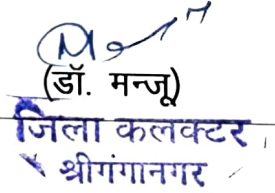 (डॉ. मन्जू)
जिला कलक्टर
श्रीगंगानगर